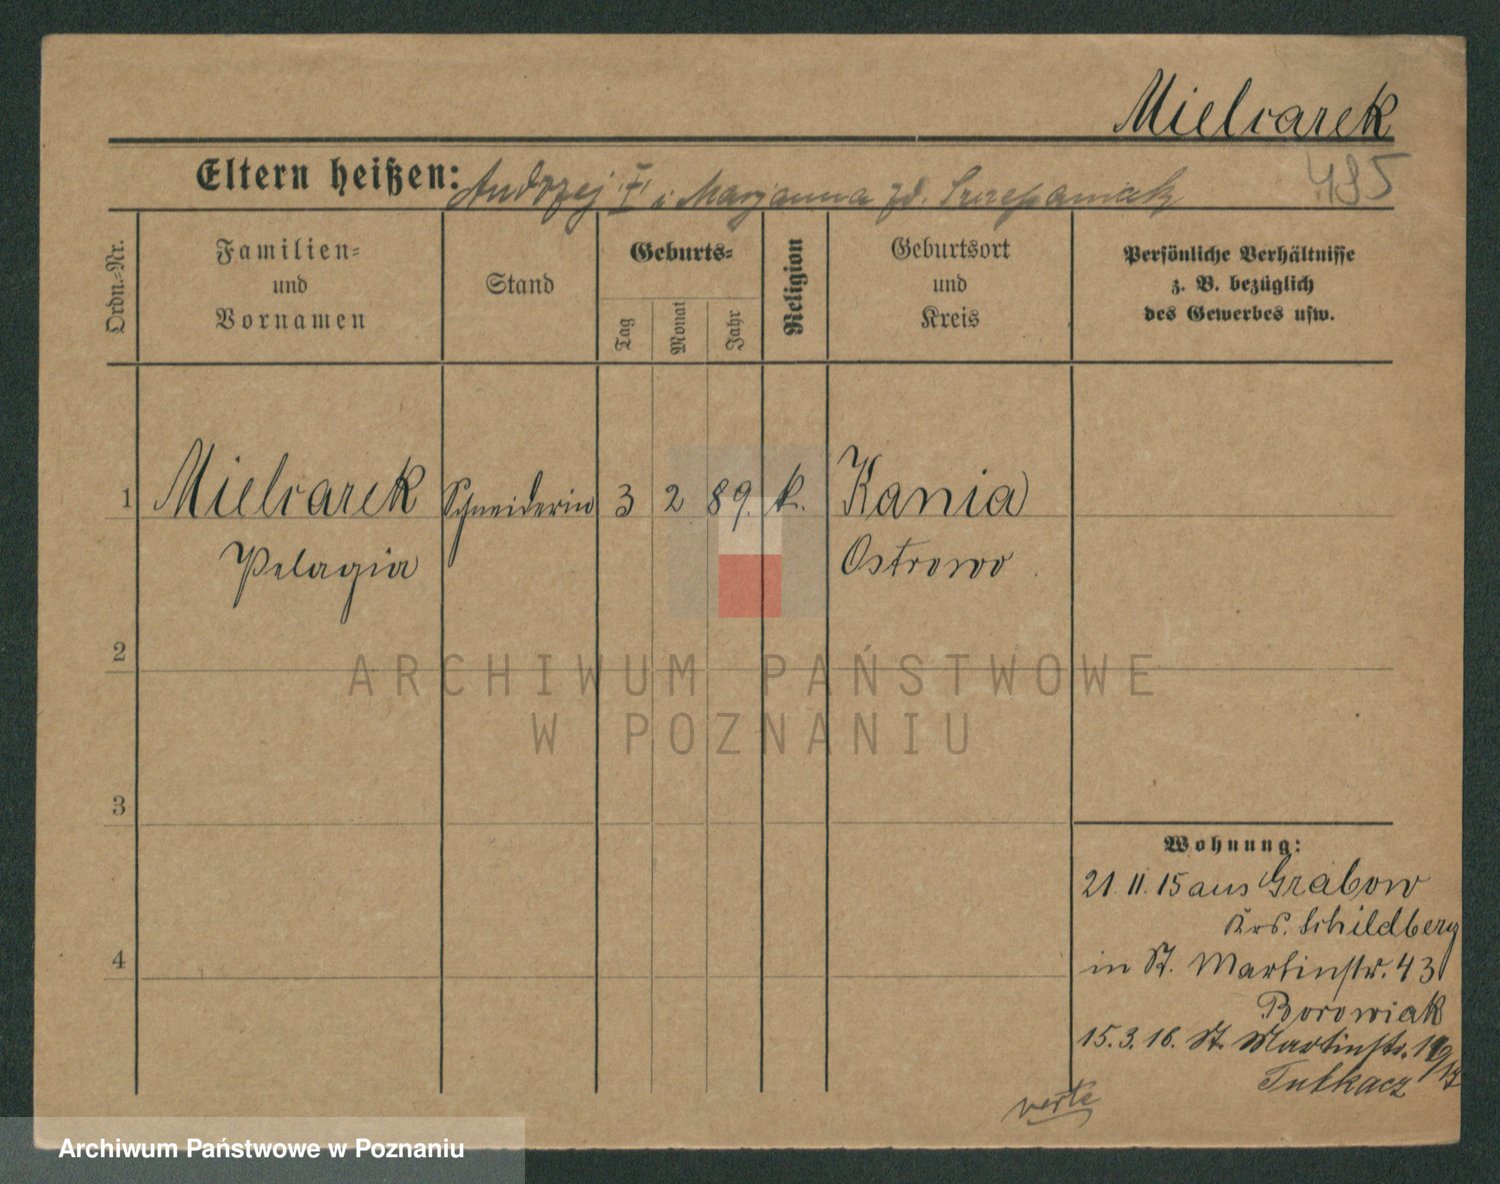 Mielcarek
495
Eltern heißen: Andrzej "I" i Marjanna zd. Szczepaniak
Ordn.-Nr.
Familien- und Vornamen
Stand
Geburts-
Tag
Monat
Jahr
Religion
Geburtsort und Kreis
Persönliche Verhältnisse
z. B. bezüglich
des Gewerbes usw.
1 Mielcarek Schneiderin 3 2 89. k. Kania
Pelagia Ostrowo
2
ARCHIWUM PAŃSTWOWE
W POZNANIU
3
Wohnung:
21. 11. 15 aus Grabow
Krs. Schildberg
4
in St. Martinstr. 43
Borowiak
15. 3. 16. St. Martinstr.
verte
Archiwum Państwowe w Poznaniu